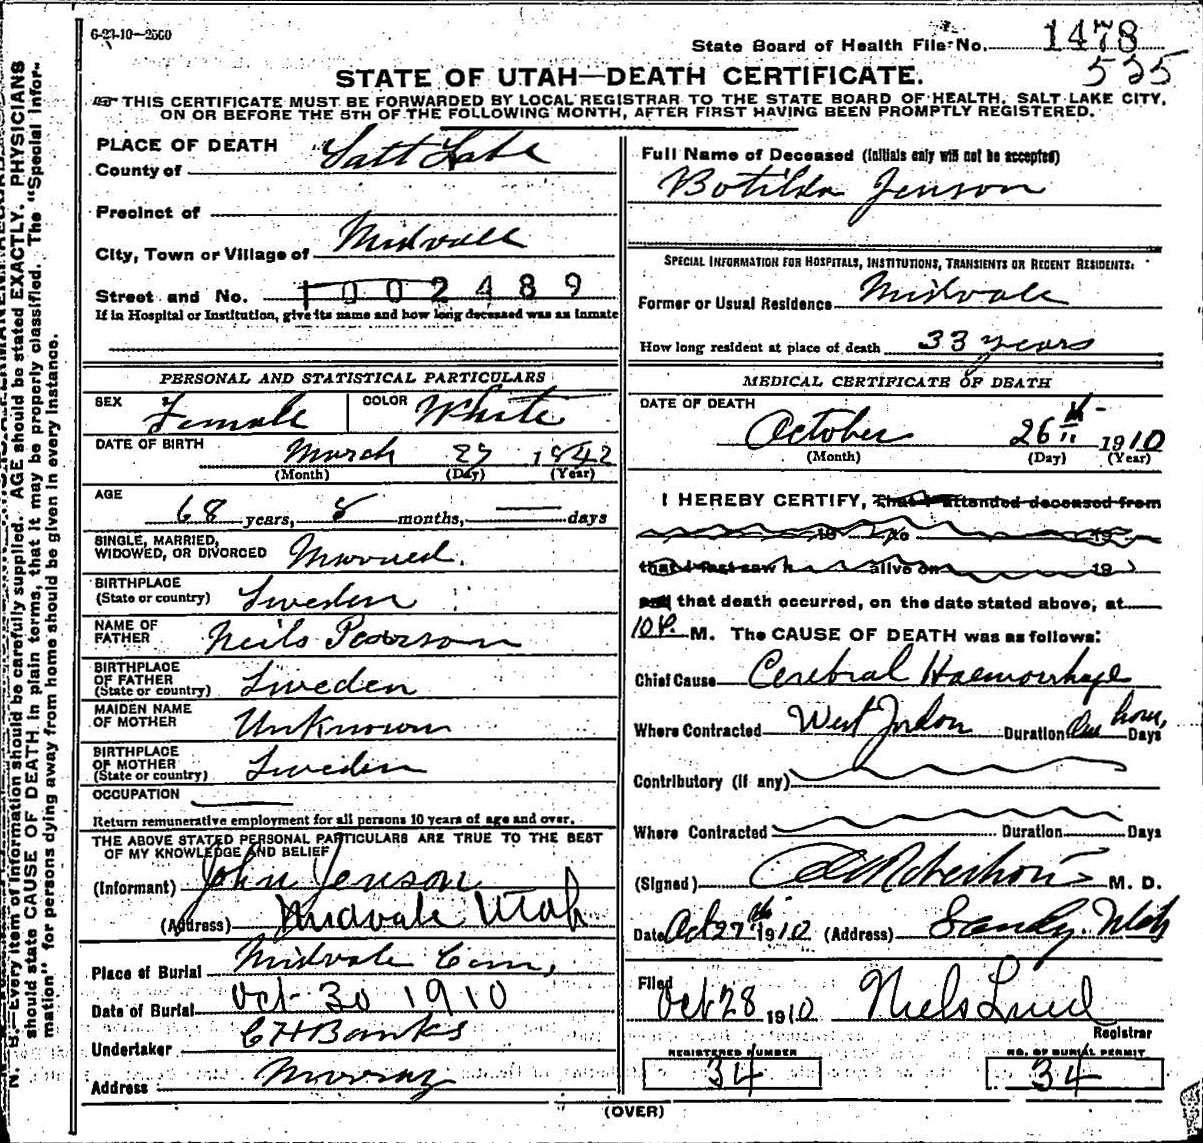 6-23-10—2500
State Board of Health File No. 1478
535
STATE OF UTAH—DEATH CERTIFICATE.
THIS CERTIFICATE MUST BE FORWARDED BY LOCAL REGISTRAR TO THE STATE BOARD OF HEALTH, SALT LAKE CITY,
ON OR BEFORE THE 5TH OF THE FOLLOWING MONTH, AFTER FIRST HAVING BEEN PROMPTLY REGISTERED.
PLACE OF DEATH
County of Salt Lake
Precinct of
City, Town or Village of Midvale
Street and No. 1002489
If in Hospital or Institution, give its name and how long deceased was an inmate
PERSONAL AND STATISTICAL PARTICULARS
SEX Female COLOR White
DATE OF BIRTH March 27 1842
(Month) (Day) (Year)
AGE
68 years, 8 months, — days
SINGLE, MARRIED,
WIDOWED, OR DIVORCED Married.
BIRTHPLACE
(State or country) Sweden
NAME OF
FATHER Neils Pearson
BIRTHPLACE
OF FATHER
(State or country) Sweden
MAIDEN NAME
OF MOTHER Unknown
BIRTHPLACE
OF MOTHER
(State or country) Sweden
OCCUPATION —
Return remunerative employment for all persons 10 years of age and over.
THE ABOVE STATED PERSONAL PARTICULARS ARE TRUE TO THE BEST
OF MY KNOWLEDGE AND BELIEF
(Informant) John Jenson
(Address) Midvale Utah
Place of Burial Midvale Cem,
Date of Burial Oct 30 1910
Undertaker C H Banks
Address Murray
Full Name of Deceased (Initials only will not be accepted)
Botilda Jenson
SPECIAL INFORMATION FOR HOSPITALS, INSTITUTIONS, TRANSIENTS OR RECENT RESIDENTS:
Former or Usual Residence Midvale
How long resident at place of death 33 years
MEDICAL CERTIFICATE OF DEATH
DATE OF DEATH
October 26th 1910
(Month) (Day) (Year)
I HEREBY CERTIFY, That I attended deceased from
19 to 19
that I last saw h alive on 19
and that death occurred, on the date stated above, at
10 P. M. The CAUSE OF DEATH was as follows:
Chief Cause Cerebral Haemorrhage
Where Contracted West Jordon Duration One hour, Days
Contributory (if any)
Where Contracted Duration Days
(Signed) Robertson M. D.
Date Oct 27th 1910 (Address) Sandy. Utah
Filed
Oct 28 1910 Niels Lind
Registrar
REGISTERED NUMBER
34
NO. OF BURIAL PERMIT
34
(OVER)
N. B.—Every item of information should be carefully supplied. AGE should be stated EXACTLY. PHYSICIANS
should state CAUSE OF DEATH in plain terms, that it may be properly classified. The "Special Infor-
mation" for persons dying away from home should be given in every instance.